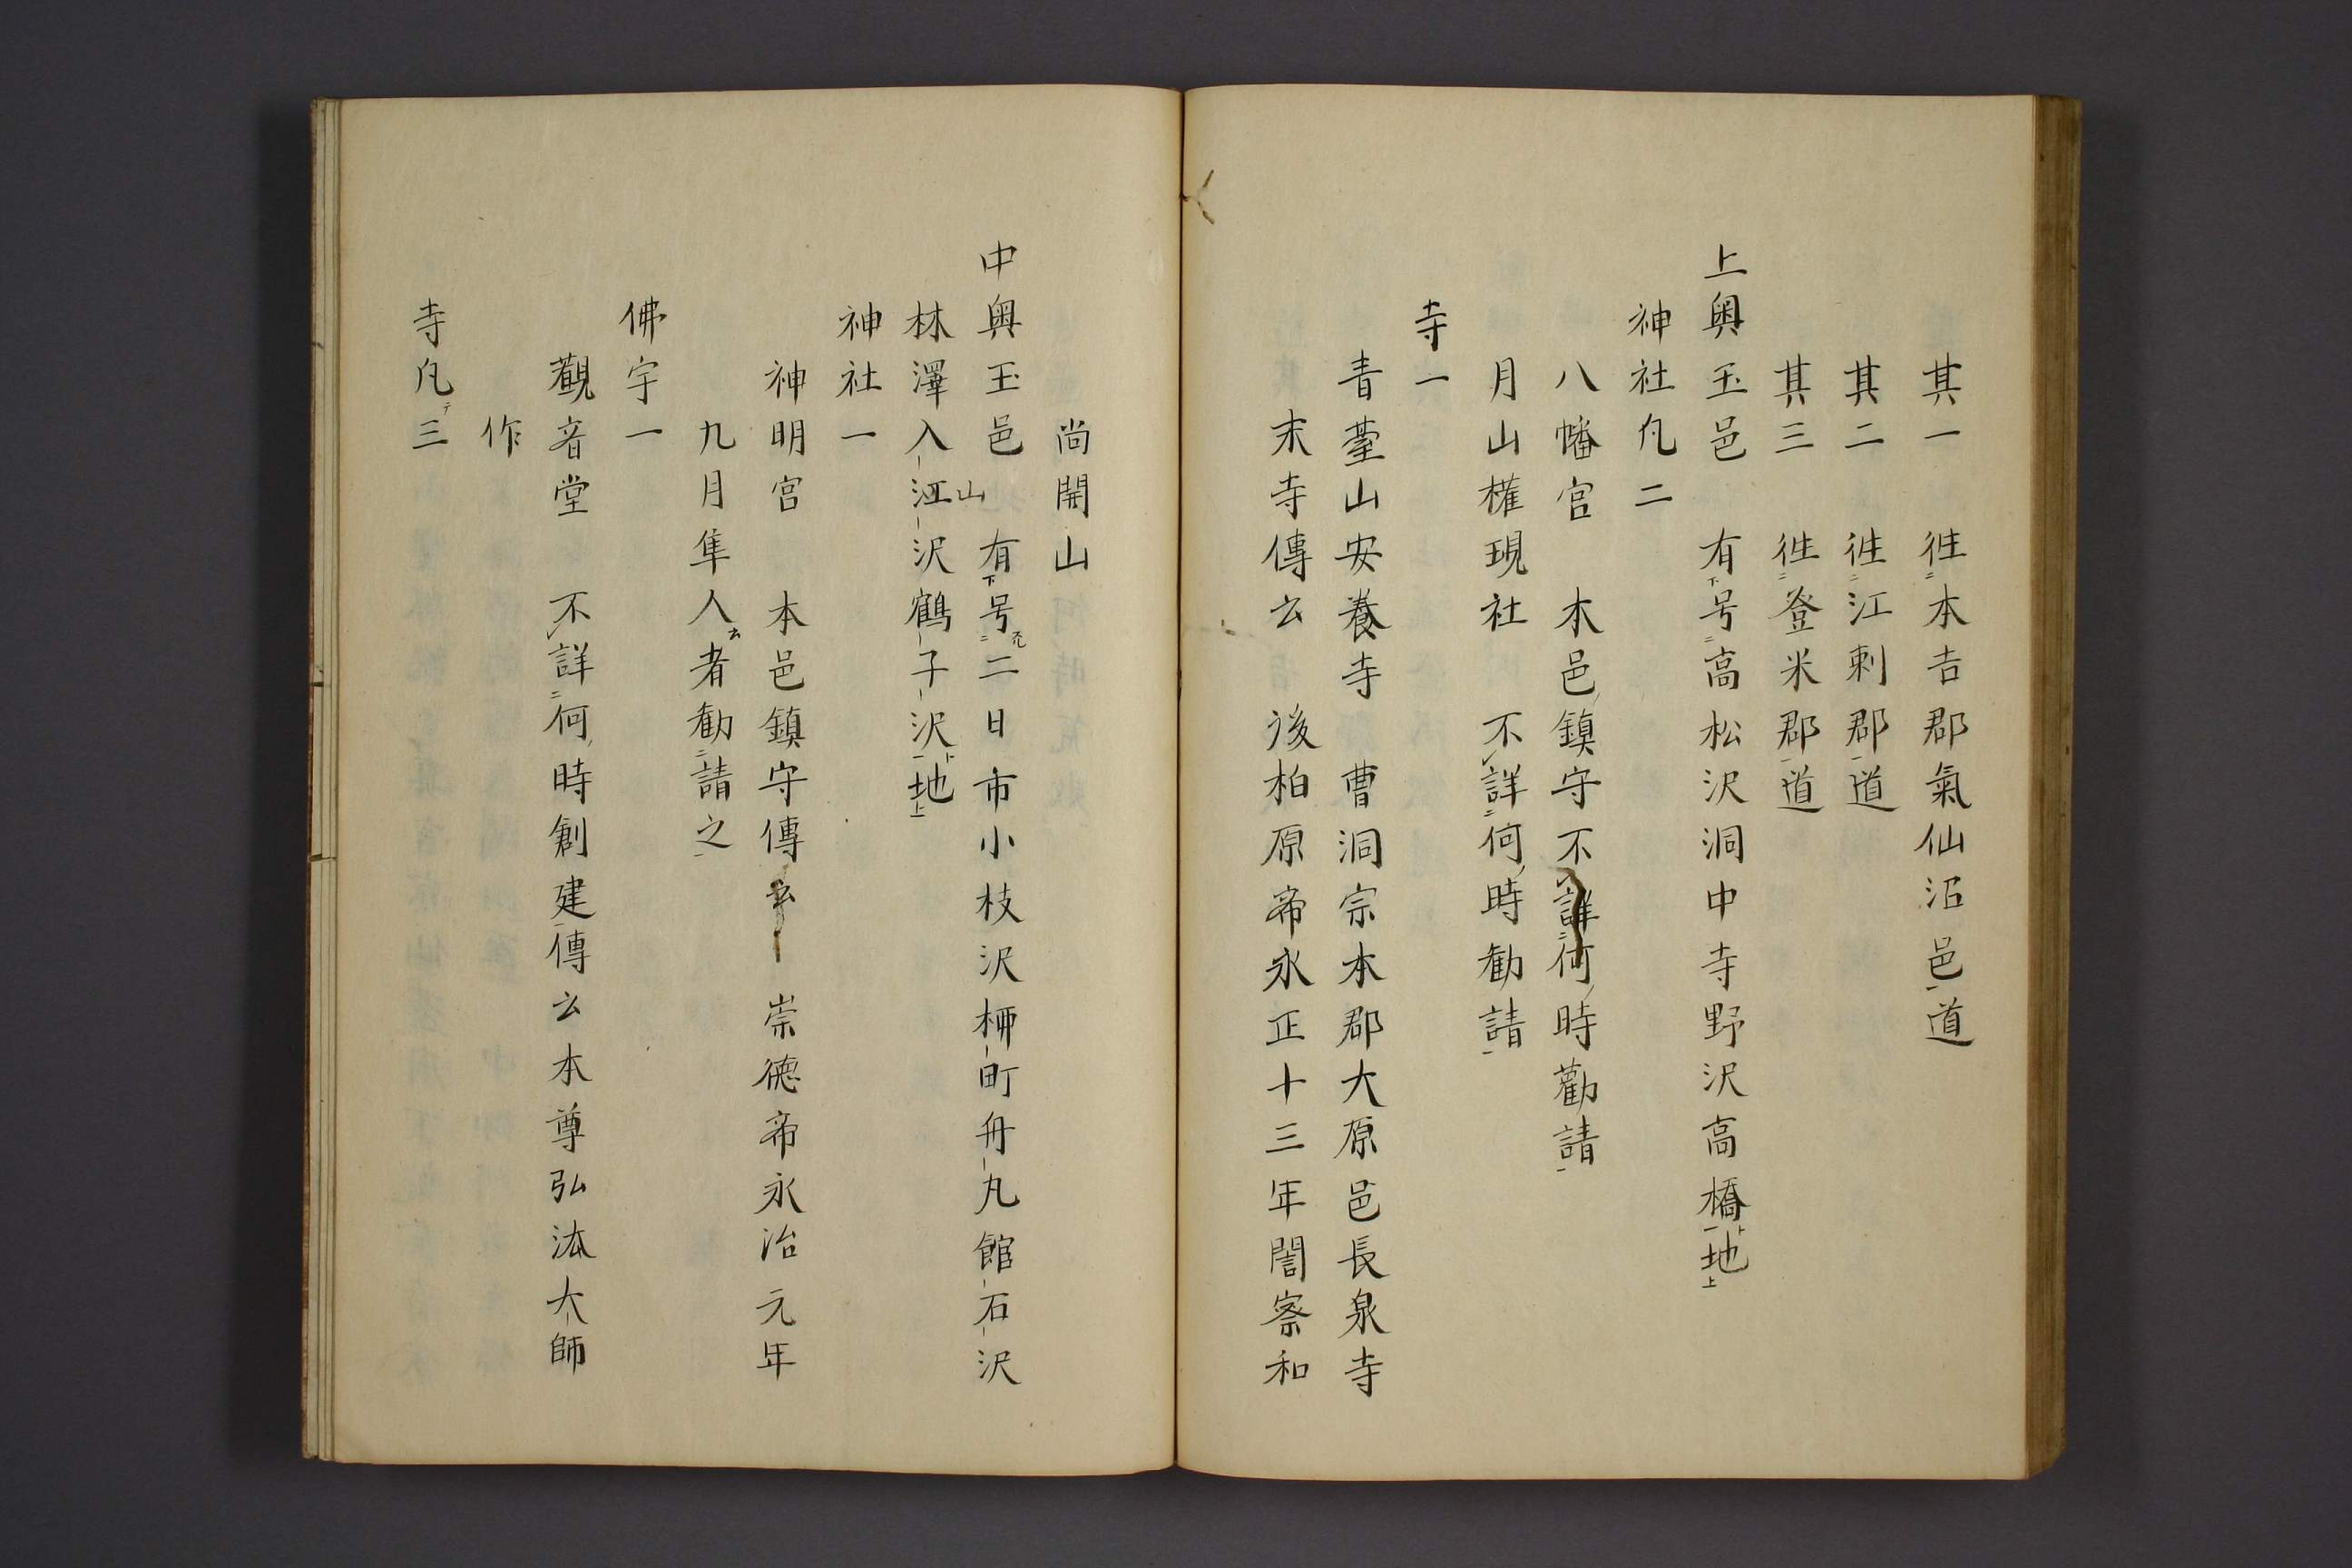 其一　徃二本吉郡氣仙沼邑一道
其二　徃二江刺郡一道
其三　徃二登米郡一道
上奥玉邑　有下号二高松沢洞中寺野沢高橋一ト地上
神社凡二
八幡宮　本邑ノ鎮守不レ詳二何ノ時勸請一
月山權現社　不レ詳二何ノ時勧請一
寺一
青臺山安養寺　曹洞宗本郡大原邑長泉寺
末寺傳云　後柏原帝永正十三年誾察和
尚開山
中奥玉邑　有下号二二日市小枝沢柵町舟丸館石沢
林澤入江山沢鶴子沢一ト地上
神社一
神明宮　本邑鎮守傳云　崇德帝永治元年
九月隼人云者勧二請之一
佛宇一
觀音堂　不レ詳二何ノ時創建一傳云本尊弘法大師
作
寺凡テ三